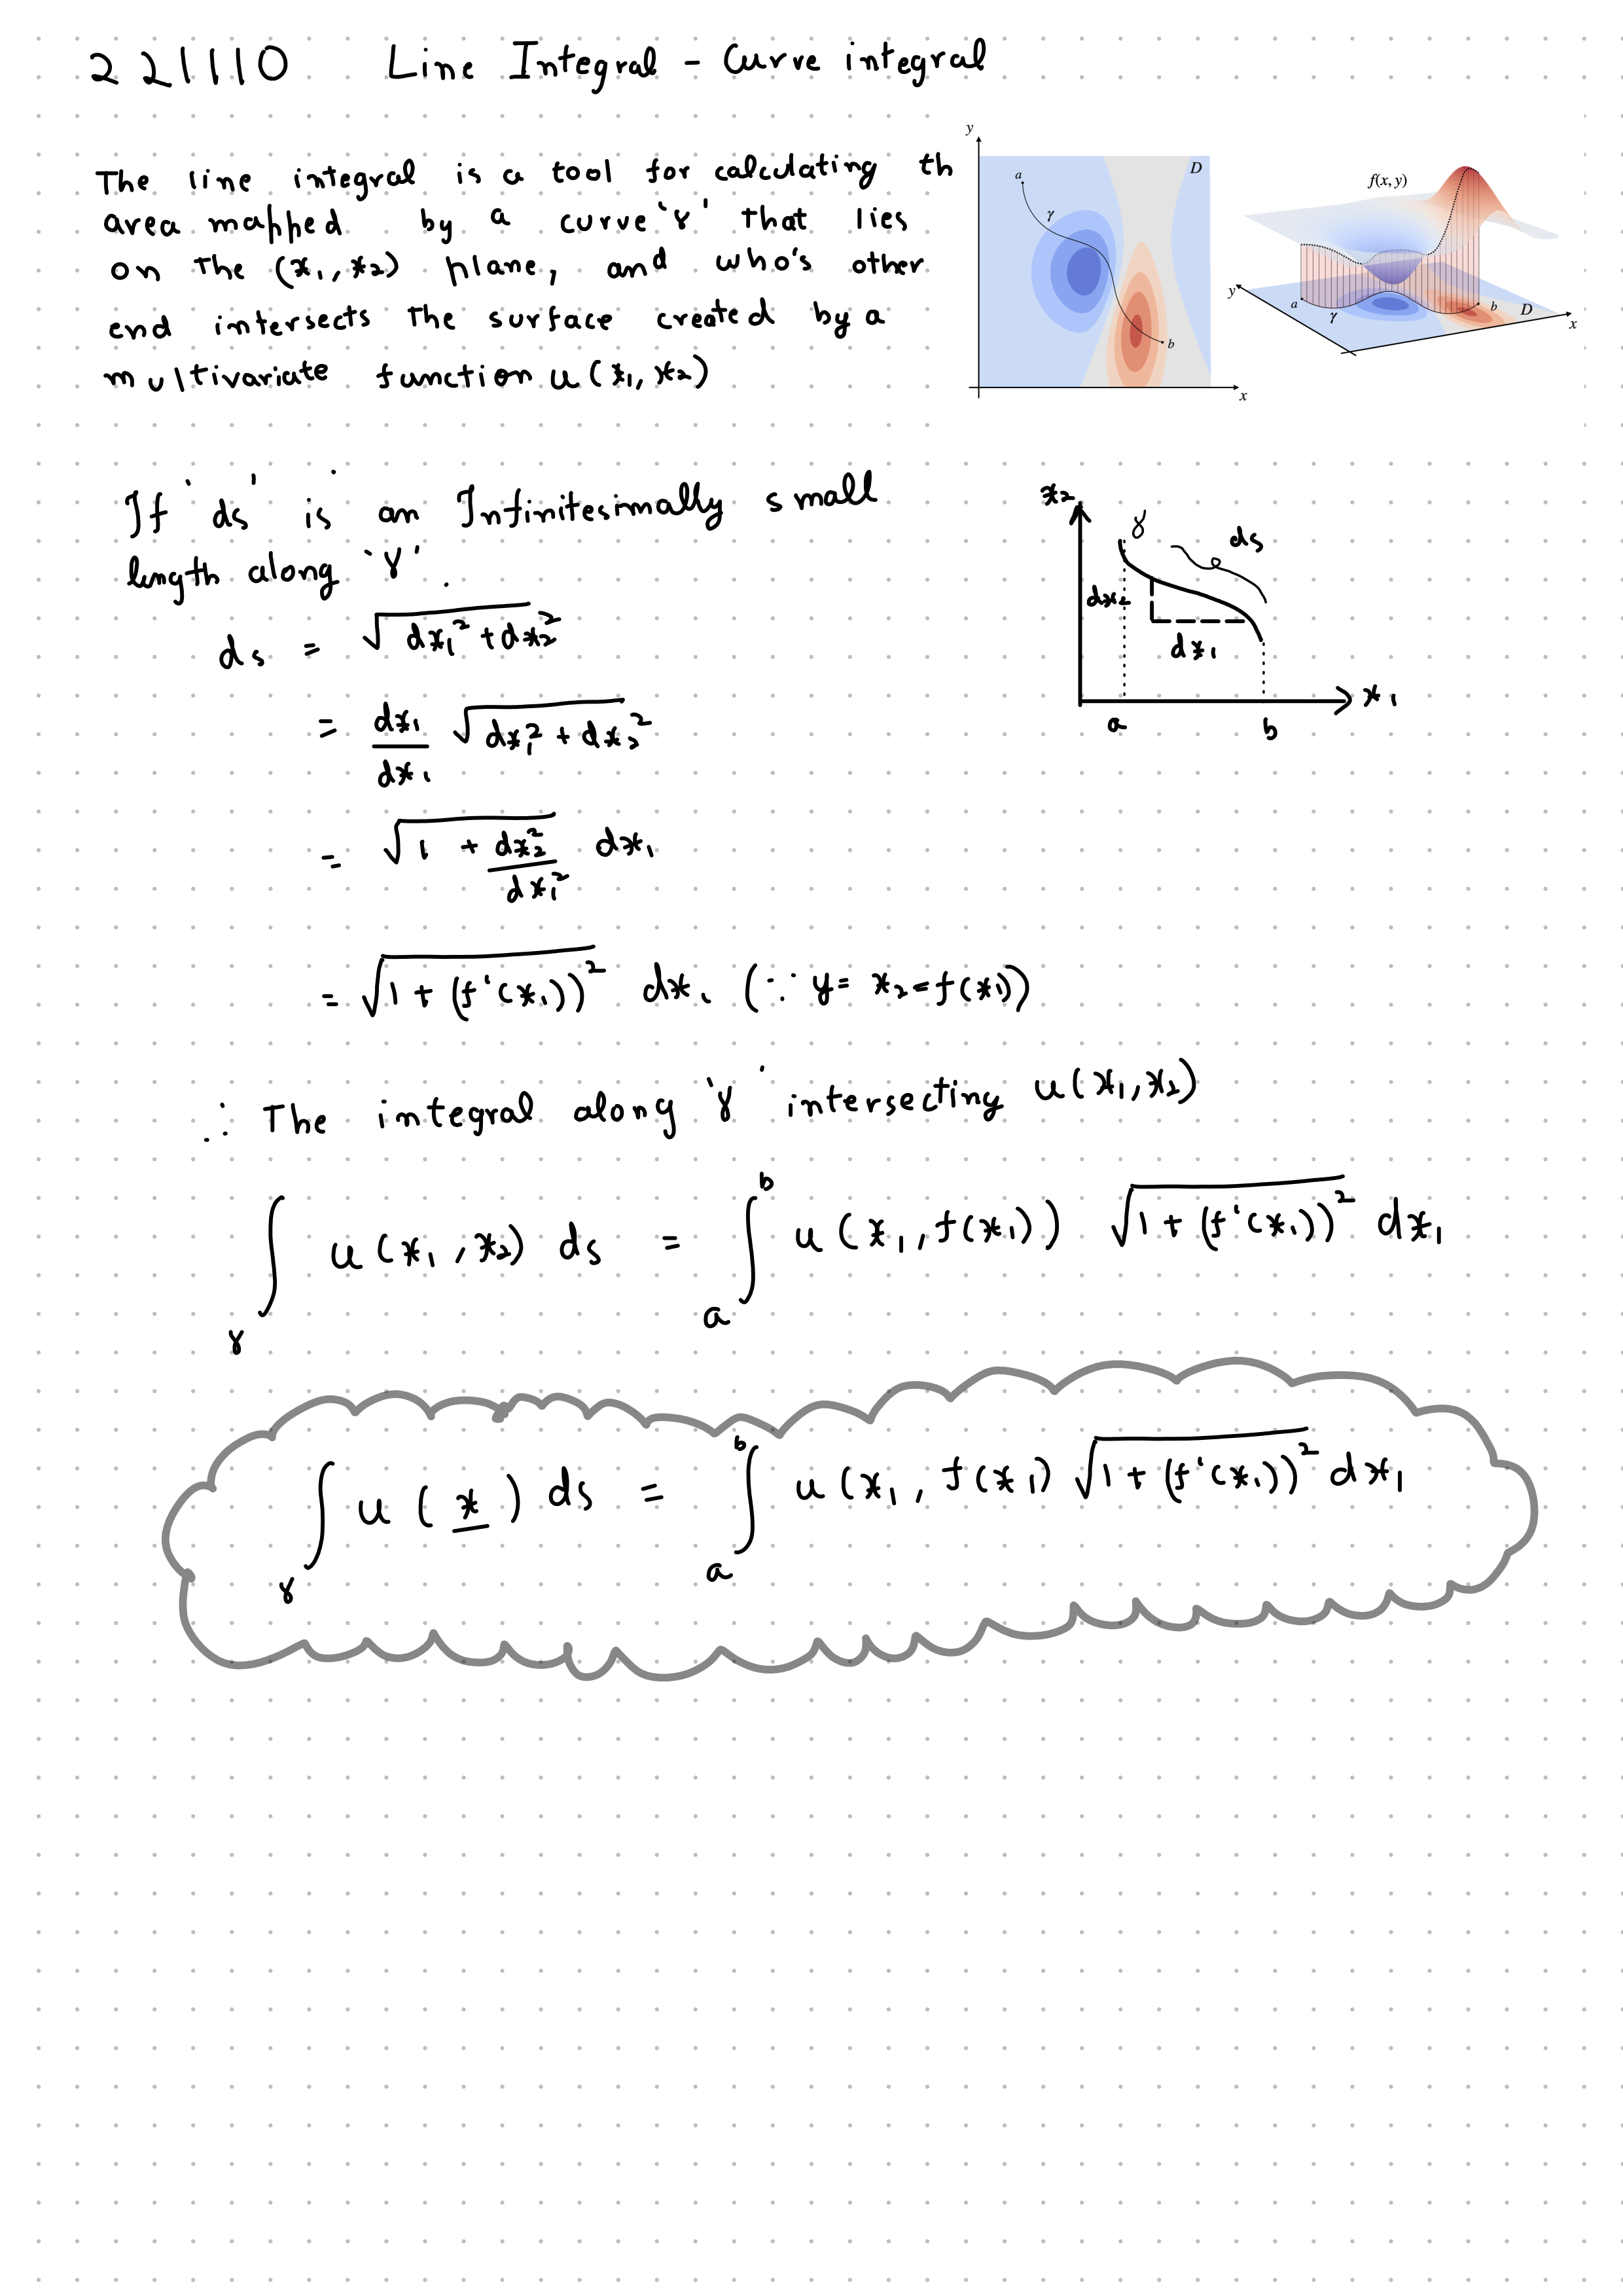 221110 Line Integral - Curve integral
The line integral is a tool for calculating th
area mapped by a curve 'γ' that lies
on the (x₁, x₂) plane, and who's other
end intersects the surface created by a
multivariate function u(x₁, x₂)
y
a
γ
D
b
x
f(x, y)
y
a
γ
b
D
x
If 'ds' is an Infinitesimally small
length along 'γ'.
ds = √(dx₁² + dx₂²)
= dx₁/dx₁ √(dx₁² + dx₂²)
= √(1 + dx₂²/dx₁²) dx₁
= √(1 + (f'(x₁))²) dx₁ (∵ y = x₂ = f(x₁))
x₂
γ
ds
dx₂
dx₁
x₁
a
b
∴ The integral along 'γ' intersecting u(x₁, x₂)
∫_γ u(x₁, x₂) ds = ∫_a^b u(x₁, f(x₁)) √(1 + (f'(x₁))²) dx₁
∫_γ u(x̲) ds = ∫_a^b u(x₁, f(x₁) √(1 + (f'(x₁))²) dx₁